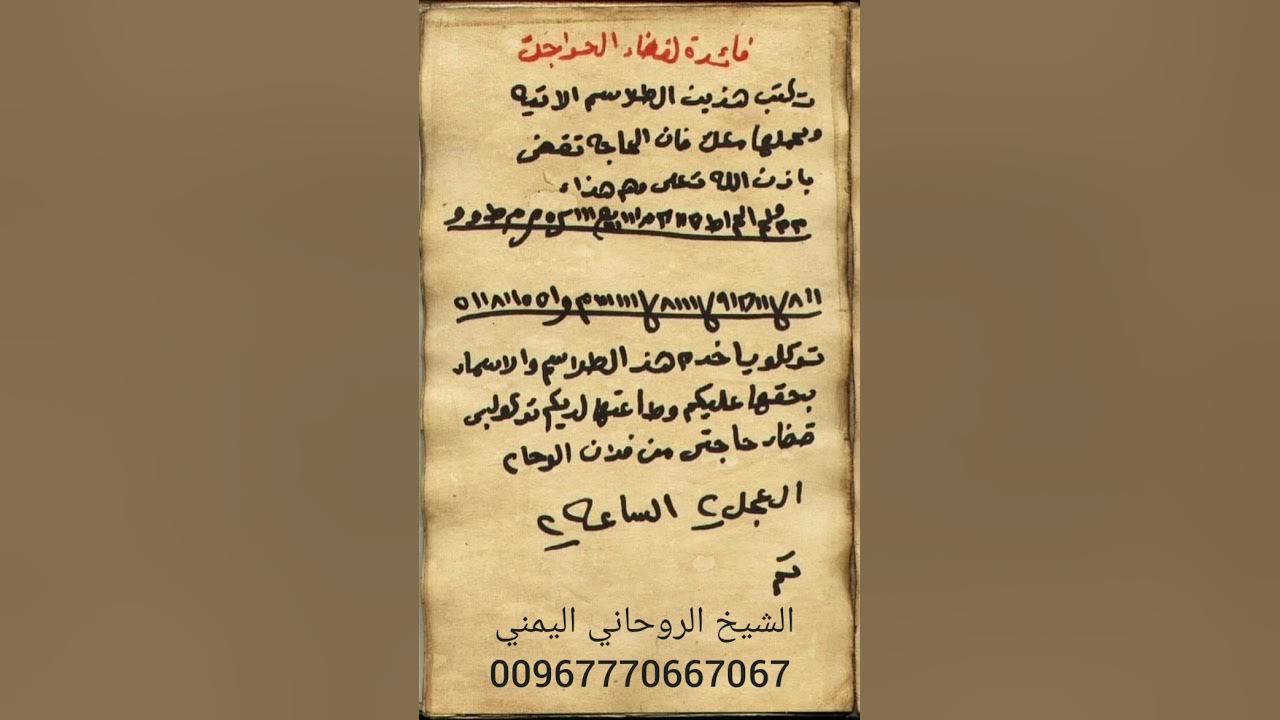 فائدة لقضاء الحواجت
تكتب هذين الطلاسم الاتيه
وتحملها معك فان الحاجه تقضى
باذن الله تعلى وهم هذاء
توكلو يا خدم هذ الطلاسم والاسماء
بحقها عليكم وطاعتها لديكم توكولبي
قضاء حاجتي من فلان الوحا٢
العجل٢ الساعه٢
تم
الشيخ الروحاني اليمني
00967770667067